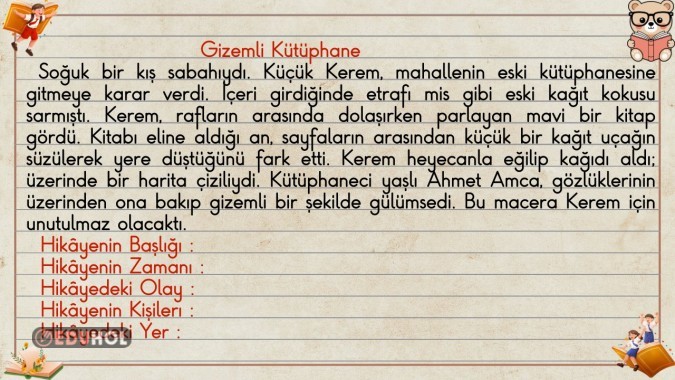 Gizemli Kütüphane
Soğuk bir kış sabahıydı. Küçük Kerem, mahallenin eski kütüphanesine
gitmeye karar verdi. İçeri girdiğinde etrafı mis gibi eski kağıt kokusu
sarmıştı. Kerem, rafların arasında dolaşırken parlayan mavi bir kitap
gördü. Kitabı eline aldığı an, sayfaların arasından küçük bir kağıt uçağın
süzülerek yere düştüğünü fark etti. Kerem heyecanla eğilip kağıdı aldı;
üzerinde bir harita çiziliydi. Kütüphaneci yaşlı Ahmet Amca, gözlüklerinin
üzerinden ona bakıp gizemli bir şekilde gülümsedi. Bu macera Kerem için
unutulmaz olacaktı.
Hikâyenin Başlığı :
Hikâyenin Zamanı :
Hikâyedeki Olay :
Hikâyenin Kişileri :
Hikâyedeki Yer :
EDUHOL